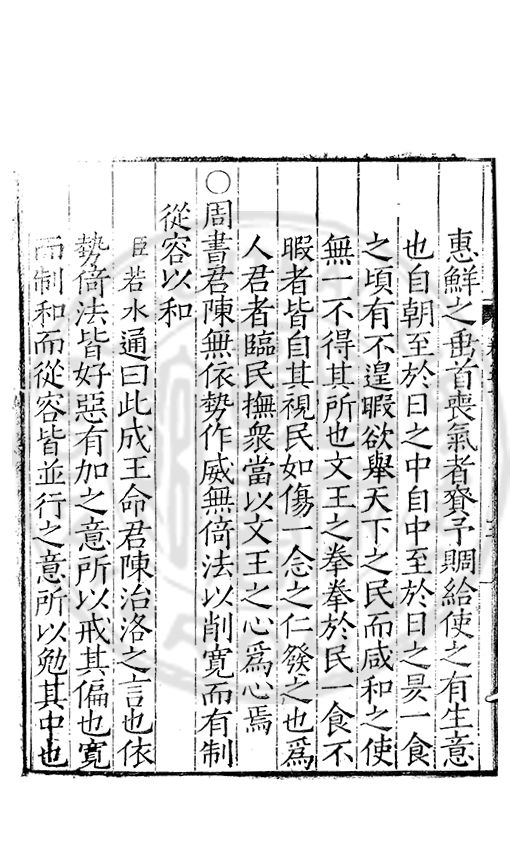 惠鮮之⿱𠂉䖝首喪氣者賚予賙給使之有生意
也自朝至於日之中自中至於日之昃一食
之頃有不遑暇欲舉天下之民而咸和之使
無一不得其所也文王之拳拳於民一食不
暇者皆自其視民如傷一念之仁發之也為
人君者臨民撫衆當以文王之心為心焉
○周書君陳無依勢作威無倚法以削寬而有制
從容以和
臣若水通曰此成王命君陳治洛之言也依
勢倚法皆好惡有加之意所以戒其偏也寬
而制和而從容皆並行之意所以勉其中也